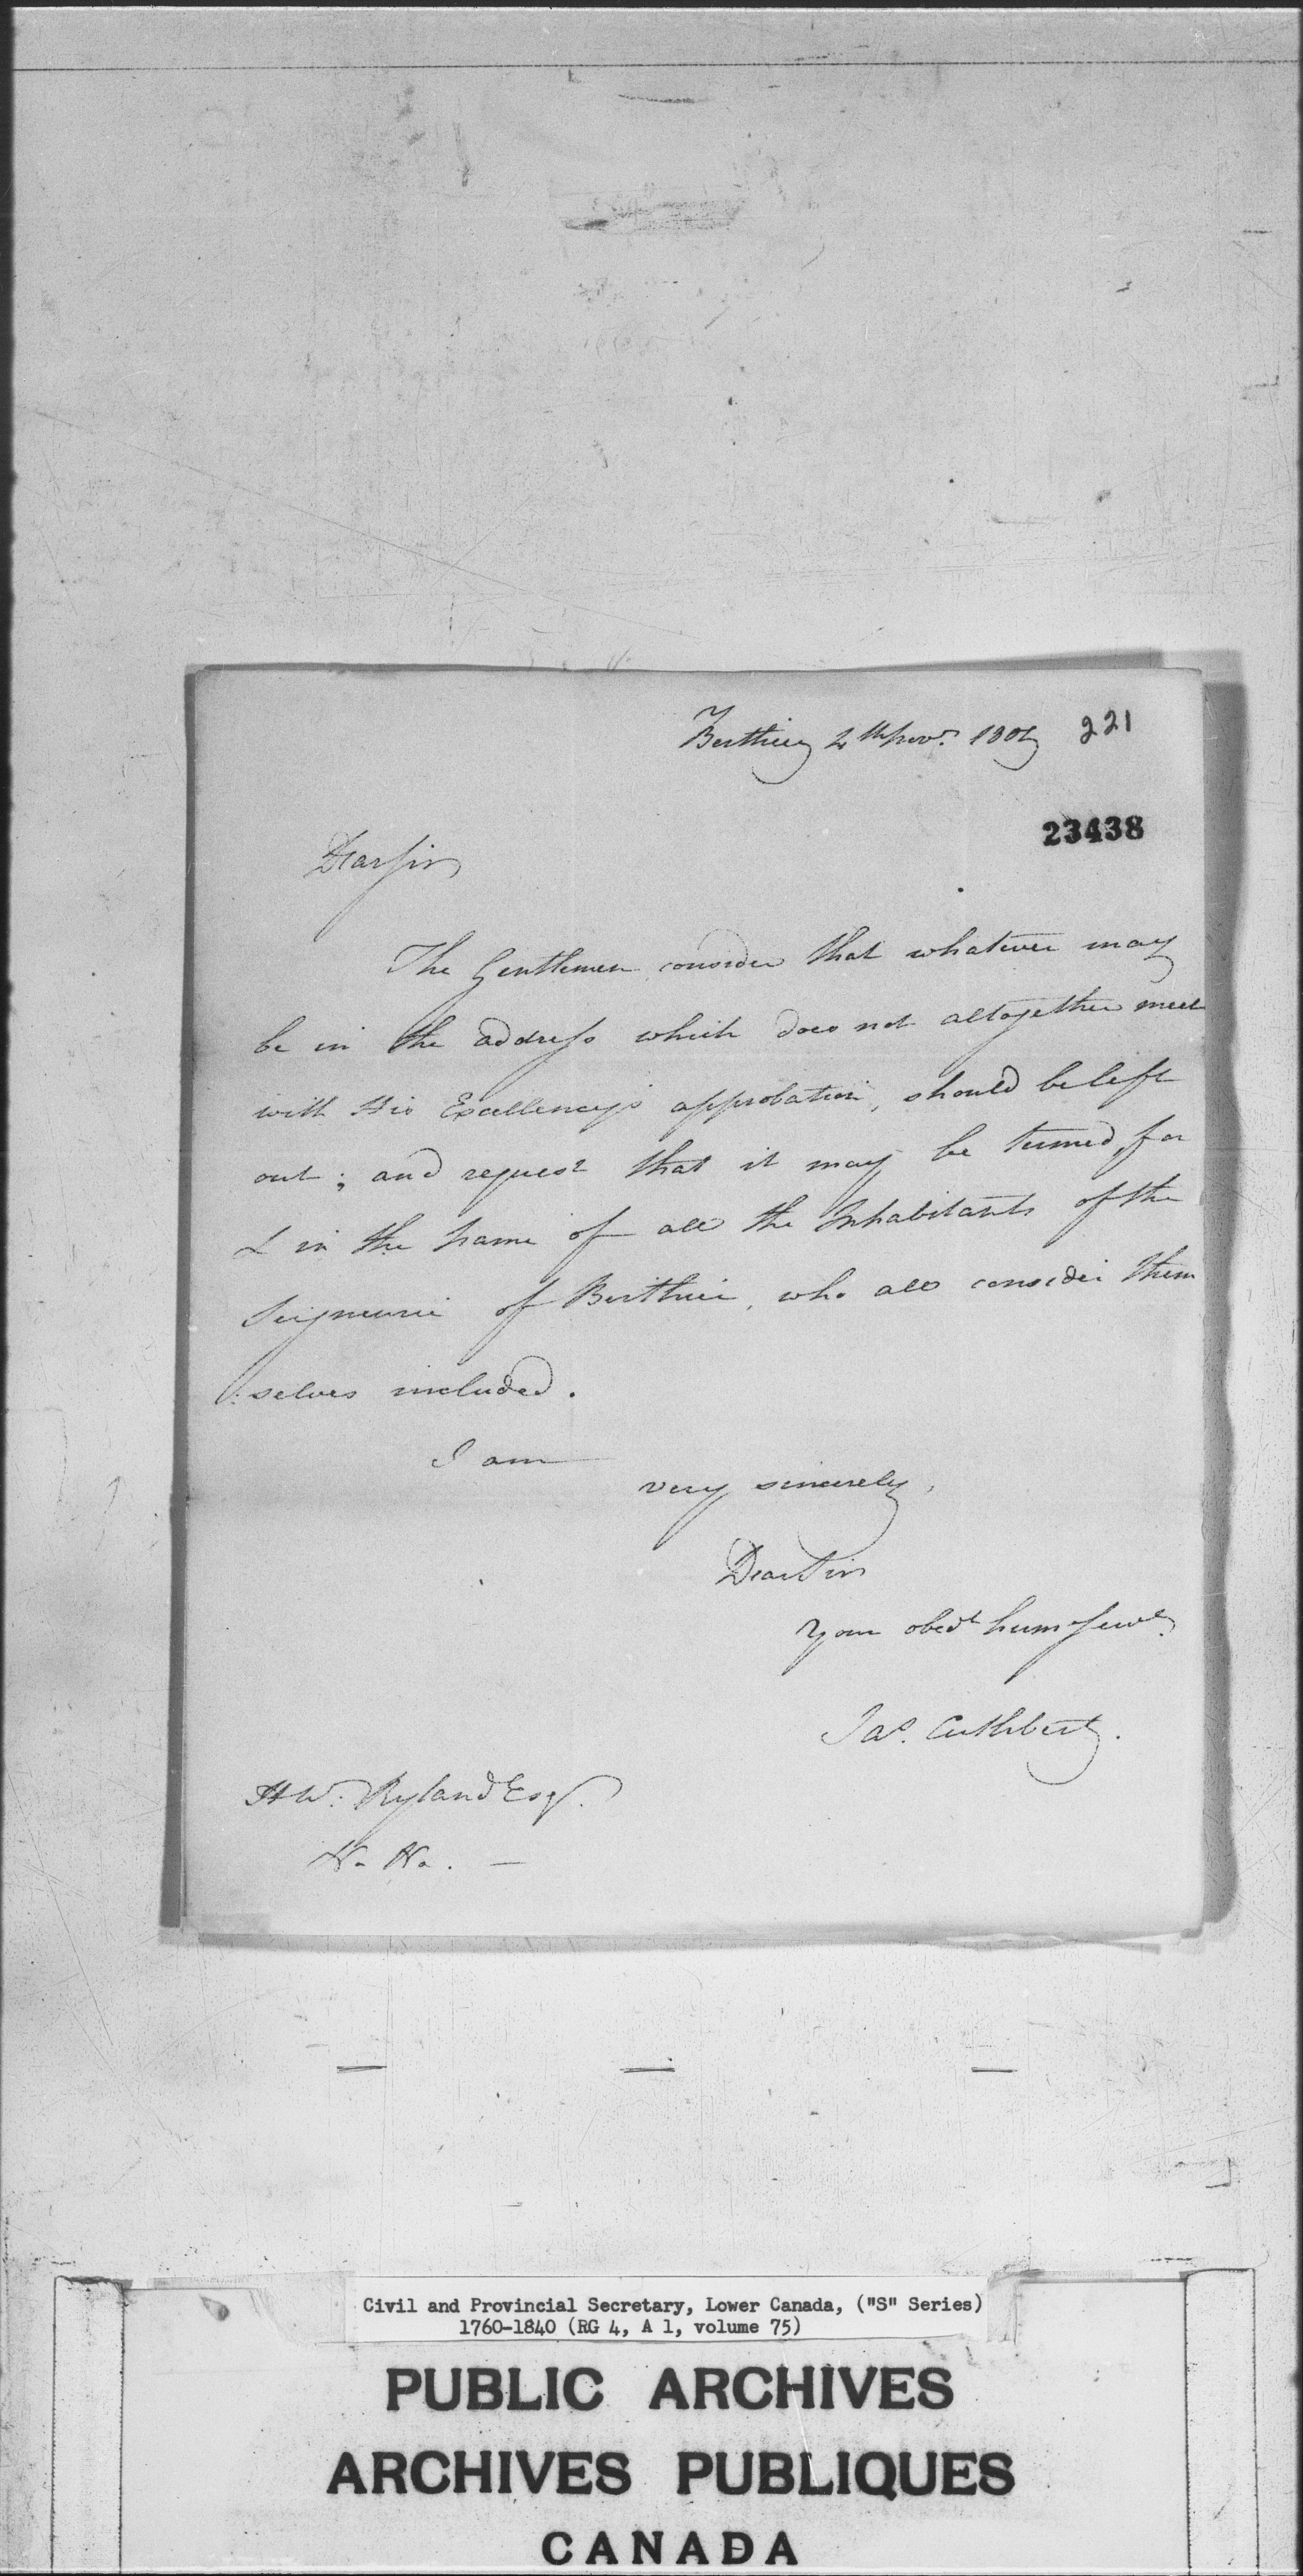 Berthier 4th Novr. 1807 221
23438
Dear Sir
The Gentlemen consider that whatever may
be in the address which does not altogether meet
with His Excellency's approbation, should be left
out; and request that it may be termed, for
& in the name of all the Inhabitants of the
Seigneurie of Berthier, who all consider them
:selves included.
I am
very sincerely,
Dear Sir
Your obedt hum Servt.
Jas. Cuthbert.
H W: Ryland Esqr.
Civil and Provincial Secretary, Lower Canada, ("S" Series)
1760-1840 (RG 4, A 1, volume 75)
PUBLIC ARCHIVES
ARCHIVES PUBLIQUES
CANADA